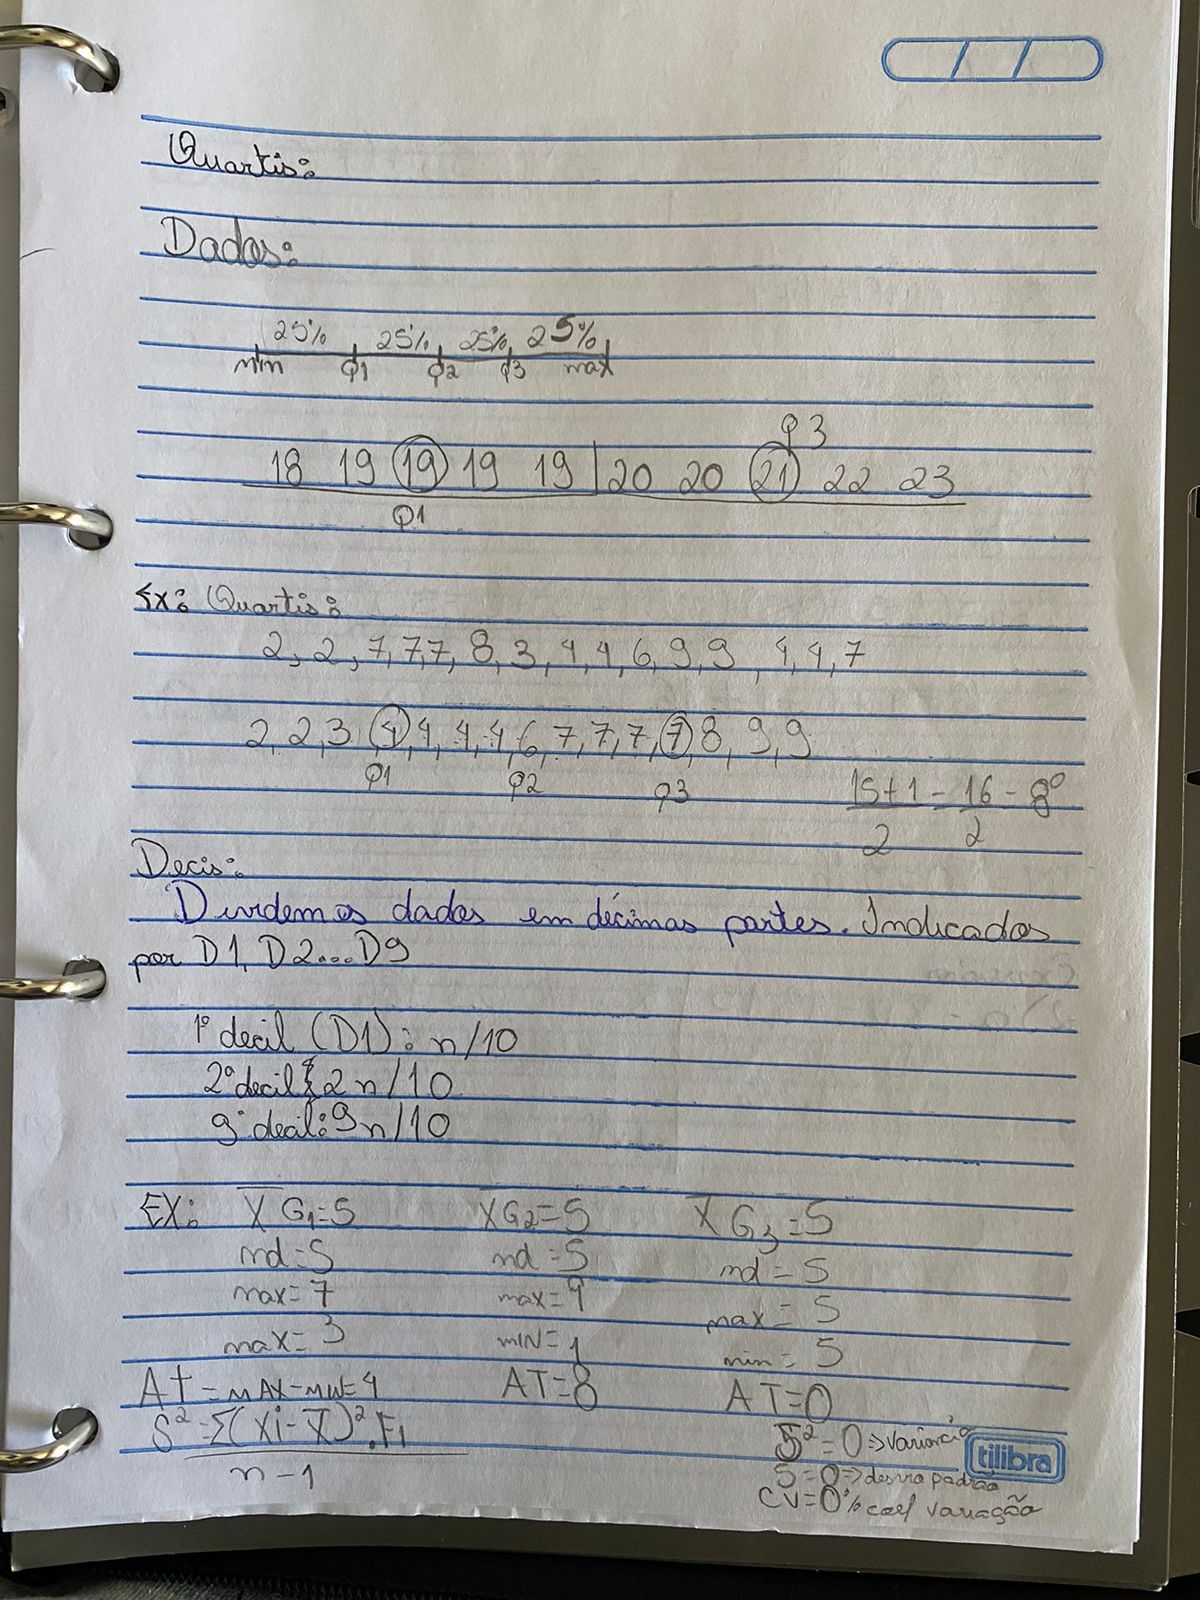 Quartis:
Dados:
25% 25% 25% 25%
min Q1 Q2 Q3 max
Q3
18 19 19 19 19 | 20 20 21 22 23
Q1
Ex: Quartis:
2, 2, 7, 7, 7, 8, 3, 4, 4, 6, 9, 9, 4, 4, 7
2, 2, 3, 4, 4, 4, 4, 6, 7, 7, 7, 7, 8, 9, 9
Q1 Q2 Q3
15+1 = 16 = 8º
2 2
Decis:
Dividem os dados em décimas partes. Indicados
por D1, D2...D9
1º decil (D1): n/10
2º decil: 2n/10
9º decil: 9n/10
EX: X̅ G1=5 X̅G2=5 X̅ G3=5
md=5 md=5 md=5
max=7 max=9 max=5
max=3 MIN=1 min=5
At=MAX-MIN=4 AT=8 AT=0
S²=Σ(Xi-X̅)².Fi
n-1
S²=0=>variancia
S=0=>desvio padrão
CV=0% coef variação
tilibra